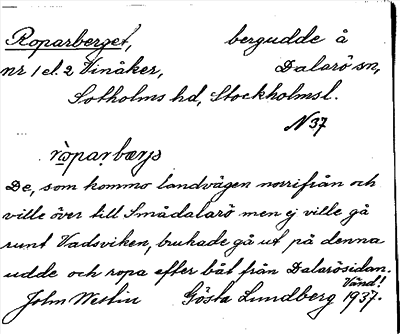 Roparberget, bergudde å
nr 1 el. 2 Vinåker, Dalarö sn,
Sotholms hd, Stockholmsl.
N 37
ròparbærjə
De, som kommo landvägen norrifrån och
ville över till Smådalarö men ej ville gå
runt Vadsviken, brukade gå ut på denna
udde och ropa efter båt från Dalarösidan.
Vänd!
John Westin Gösta Lundberg 1937.